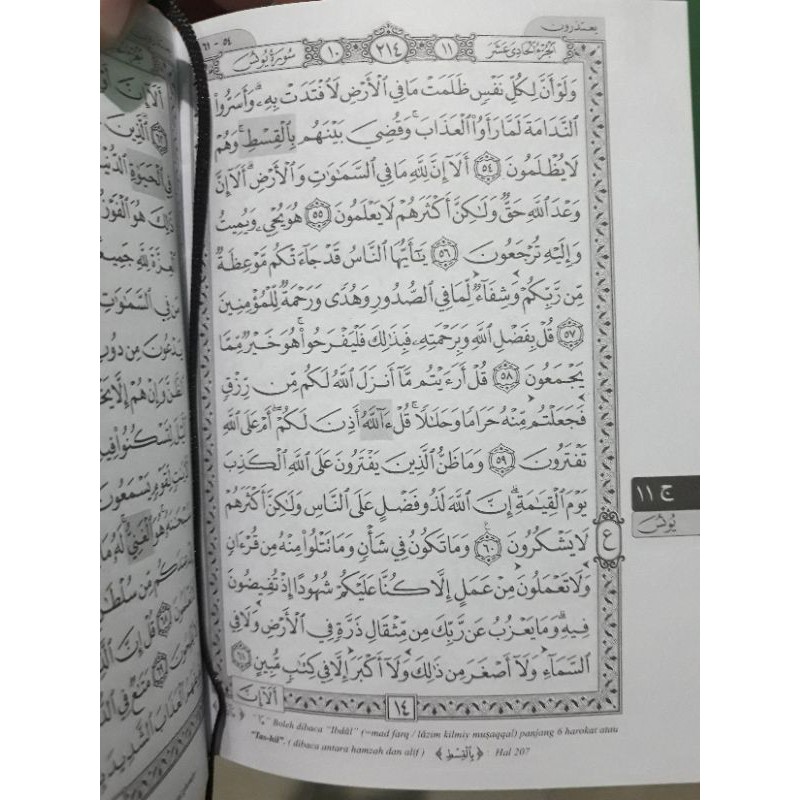 يعتذرون
الجزء الحادي عشر ١١ ٢١٤ ١٠ سورة يونس ٥٤ - ٦١
وَلَوْ أَنَّ لِكُلِّ نَفْسٍ ظَلَمَتْ مَا فِي الْأَرْضِ لَافْتَدَتْ بِهِ ۗ وَأَسَرُّوا
النَّدَامَةَ لَمَّا رَأَوُا الْعَذَابَ ۖ وَقُضِيَ بَيْنَهُم بِالْقِسْطِ ۚ وَهُمْ
لَا يُظْلَمُونَ ٥٤ أَلَا إِنَّ لِلَّهِ مَا فِي السَّمَاوَاتِ وَالْأَرْضِ ۗ أَلَا إِنَّ
وَعْدَ اللَّهِ حَقٌّ وَلَٰكِنَّ أَكْثَرَهُمْ لَا يَعْلَمُونَ ٥٥ هُوَ يُحْيِي وَيُمِيتُ
وَإِلَيْهِ تُرْجَعُونَ ٥٦ يَا أَيُّهَا النَّاسُ قَدْ جَاءَتْكُم مَّوْعِظَةٌ
مِّن رَّبِّكُمْ وَشِفَاءٌ لِّمَا فِي الصُّدُورِ وَهُدًى وَرَحْمَةٌ لِّلْمُؤْمِنِينَ
٥٧ قُلْ بِفَضْلِ اللَّهِ وَبِرَحْمَتِهِ فَبِذَٰلِكَ فَلْيَفْرَحُوا هُوَ خَيْرٌ مِّمَّا
يَجْمَعُونَ ٥٨ قُلْ أَرَأَيْتُم مَّا أَنزَلَ اللَّهُ لَكُم مِّن رِّزْقٍ
فَجَعَلْتُم مِّنْهُ حَرَامًا وَحَلَالًا قُلْ ءَآللَّهُ أَذِنَ لَكُمْ ۖ أَمْ عَلَى اللَّهِ
تَفْتَرُونَ ٥٩ وَمَا ظَنُّ الَّذِينَ يَفْتَرُونَ عَلَى اللَّهِ الْكَذِبَ
يَوْمَ الْقِيَامَةِ ۗ إِنَّ اللَّهَ لَذُو فَضْلٍ عَلَى النَّاسِ وَلَٰكِنَّ أَكْثَرَهُمْ
لَا يَشْكُرُونَ ٦٠ وَمَا تَكُونُ فِي شَأْنٍ وَمَا تَتْلُو مِنْهُ مِن قُرْآنٍ
وَلَا تَعْمَلُونَ مِنْ عَمَلٍ إِلَّا كُنَّا عَلَيْكُمْ شُهُودًا إِذْ تُفِيضُونَ
فِيهِ ۚ وَمَا يَعْزُبُ عَن رَّبِّكَ مِن مِّثْقَالِ ذَرَّةٍ فِي الْأَرْضِ وَلَا فِي
السَّمَاءِ وَلَا أَصْغَرَ مِن ذَٰلِكَ وَلَا أَكْبَرَ إِلَّا فِي كِتَابٍ مُّبِينٍ ٦١
ع
ج ١١
يونس
١٤
أَلَا إِنَّ
Boleh dibaca "Ibdāl" (=mad farq / lāzim kilmiy muṣaqqal) panjang 6 harokat atau
"Tas-hil". ( dibaca antara hamzah dan alif ) ﴿بِالْقِسْطِ﴾ : Hal 207